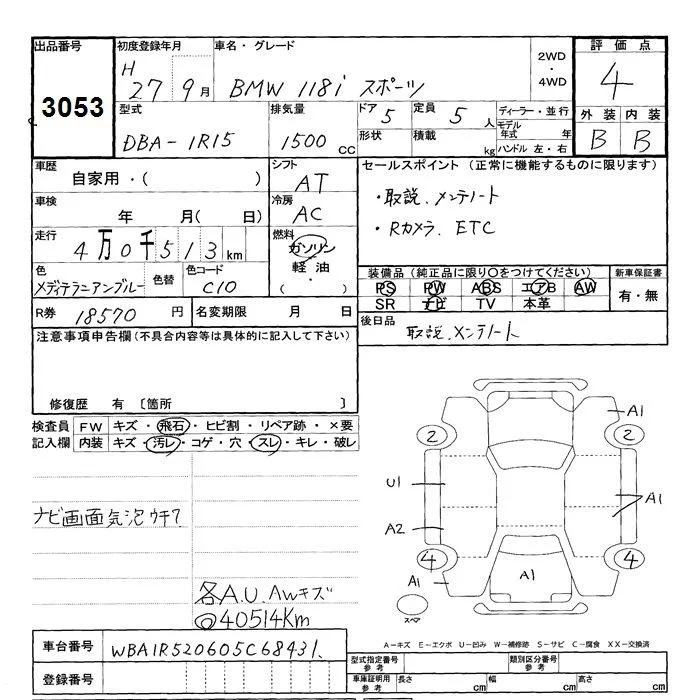 出品番号
3053
初度登録年月
H 27 9月
車名・グレード
BMW 118i スポーツ
2WD
・
4WD
評価点
4
外装 内装
B B
型式
DBA-1R15
排気量
1500 CC
ドア 5
形状
定員 5 人
積載 kg
ディーラー・並行
モデル年式 年
ハンドル 左・右
車歴
自家用・( )
シフト
AT
車検
年 月( 日)
冷房
AC
走行
4万0千513km
燃料
ガソリン
軽油
・
色
メディテラニアンブルー
色替
色コード
C10
R券 18570 円
名変期限 月 日
セールスポイント (正常に機能するものに限ります)
・取説、メンテノート
・Rカメラ、ETC
装備品 (純正品に限り○をつけてください)
新車保証書
PS PW ABS エアB AW
SR ナビ TV 本革
有・無
後日品
取説、メンテノート
注意事項申告欄 (不具合内容等は具体的に記入して下さい)
修復歴 有 〔箇所 〕
検査員記入欄
FW キズ・飛石・ヒビ割・リペア跡・×要
内装 キズ・汚レ・コゲ・穴・スレ・キレ・破レ
ナビ画面気泡
各A.U. AWキズ
◎40514Km
A1
2 2
U1
A1
A2
4 4
A1
A1
スペア
A－キズ E－エクボ U－凹み W－補修跡 S－サビ C－腐食 XX－交換済
車台番号
WBA1R520605C68431
登録番号
型式指定番号 参考
類別区分番号 参考
車庫証明用 参考
長さ cm
幅 cm
高さ cm